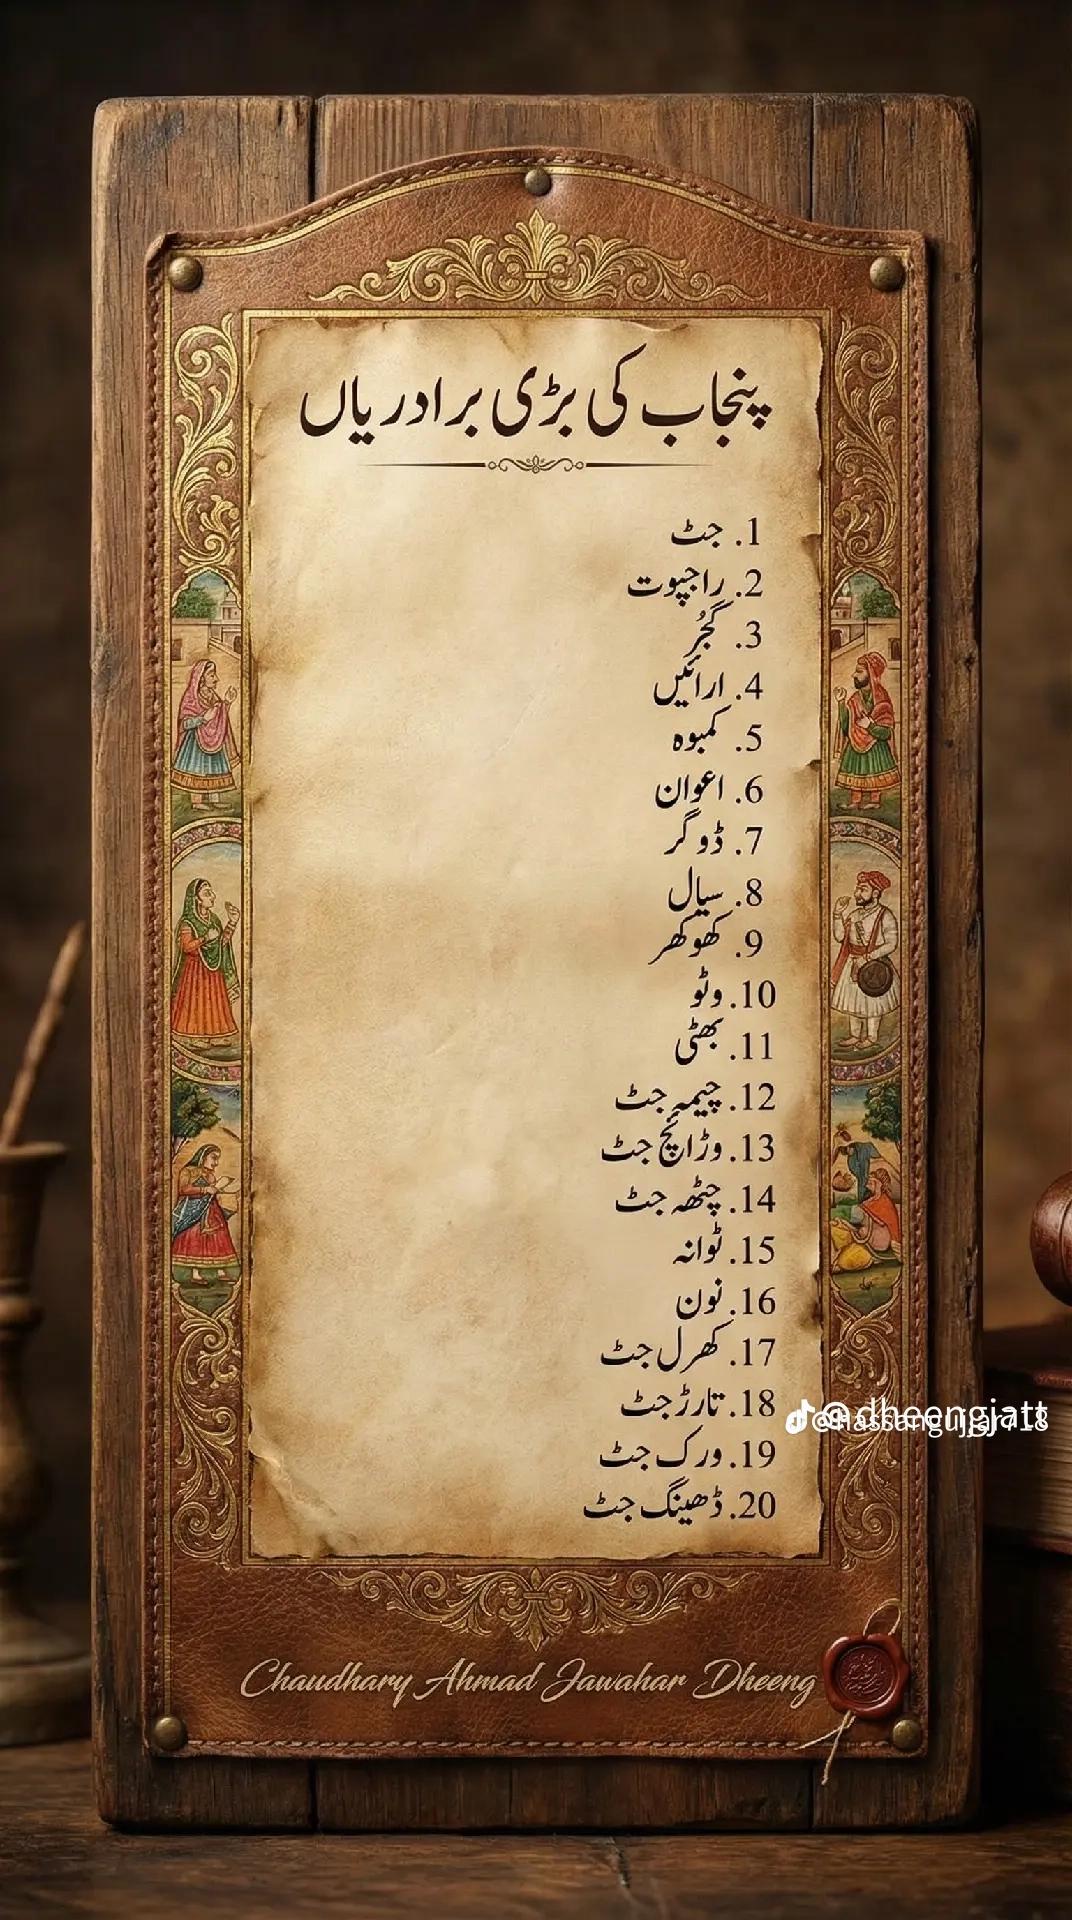 پنجاب کی بڑی برادریاں
1. جٹ
2. راجپوت
3. گجُر
4. ارائیں
5. کمبوہ
6. اعوان
7. ڈوگر
8. سیال
9. کھوکھر
10. وٹو
11. بھٹی
12. چیمہ جٹ
13. وڑائچ جٹ
14. چٹھہ جٹ
15. ٹوانہ
16. نون
17. کھرل جٹ
18. تارڑ جٹ
19. ورک جٹ
20. ڈھینگ جٹ
@dheengjatt
Chaudhary Ahmad Jawahar Dheeng